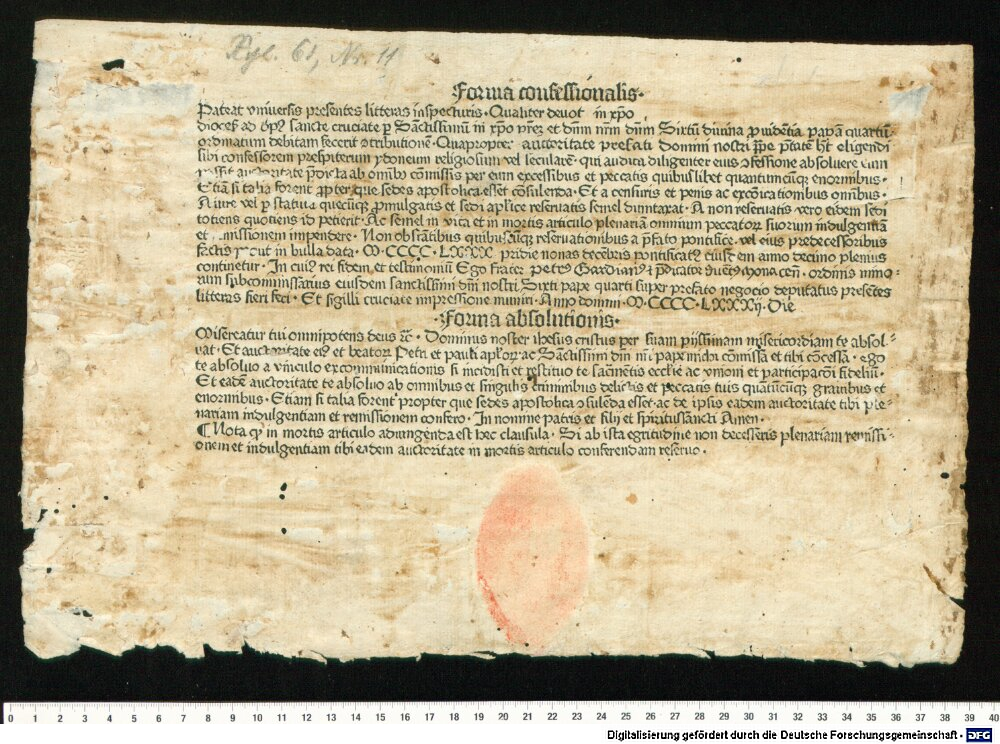 Xyl. 61, Nr. 11
Forma confessionalis·
Pateat vniuersis presentes litteras inspecturis· Qualiter deuot in xpo
dioces ad op9 sancte cruciate p Sanctissimū in xpo prez et dnm nrm dnm Sixtū diuina puidētia papā quartū
ordinatum debitam fecerit ɔtributionē· Quapropter auctoritate prefati domini nostri ppe ptate hȝ eligendi
sibi confessorem presbiterum ydoneum religiosum vel secularē· qui audita diligenter eius ɔfessione absoluere eum
possit auctoritate pdicta ab omīb9 cōmissis per eum excessibus et peccatis quibuslibet quantumcūqȝ enormibus·
Etiā si talia forent ppter que sedes apostolica esset cōsulenda· Et a censuris et penis ac excōicationibus omībus·
A iure vel p statuta quecūqȝ promulgatis et sedi aplice reseruatis semel dumtaxat· A non reseruatis vero eidem sedi
totiens quotiens id petierit· Ac semel in vita et in mortis articulo plenariā omnium peccatorꝝ suorum indulgentiā
et missionem impendere· Non obstātibus quibuscūqȝ reseruationibus a pfato pontifice vel eius predecessoribus
factis prout in bulla data· M·CCCC·LXXX pridie nonas decēbris pontificat9 eiusdē anno decimo plenius
continetur· In cui9 rei fidem et testimoniū Ego frater Petr9 ordinis mino-
rum subcommissarius eiusdem sanctissimi dni nostri Sixti pape quarti super prefato negocio deputatus presētes
litteras fieri feci· Et sigilli cruciate impressione muniri· Anno domini·M·CCCC·LXXXij·Die
·Forma absolutionis·
Misereatur tui omnipotens deus ɿc̄· Dominus noster ihesus cristus per suam pijssimam misericordiam te absol-
uat· Et auctoritate ei9 et beatorꝝ Petri et pauli aplorꝝ ac Sanctissimi dni nri pape michi cōmissa et tibi cōcessa· ego
te absoluo a vinculo excommunicationis si incidisti et restituo te sacramētis ecclie ac vnioni et participacōi fideliū·
Et eadē auctoritate te absoluo ab omnibus et singulis criminibus delictis et peccatis tuis quātūcūqȝ grauibus et
enormibus· Etiam si talia forent propter que sedes apostolica ɔsulēda esset· ac de ipsis eadem auctoritate tibi ple-
nariam indulgentiam et remissionem confero· In nomine patris et filij et spiritussancti Amen·
¶ Nota qꝫ in mortis articulo adiungenda est hec clausula· Si ab ista egritudine non decesseris plenariam remissi-
onem et indulgentiam tibi eadem auctoritate in mortis articulo conferendam reseruo·
0 1 2 3 4 5 6 7 8 9 10 11 12 13 14 15 16 17 18 19 20 21 22 23 24 25 26 27 28 29 30 31 32 33 34 35 36 37 38 39 40
Digitalisierung gefördert durch die Deutsche Forschungsgemeinschaft · DFG